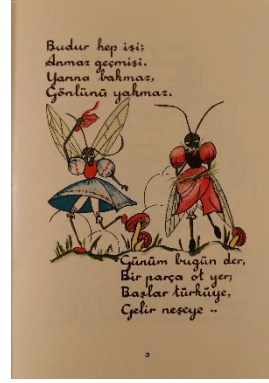 Budur hep işi;
Anmaz geçmişi.
Yarına bakmaz,
Gönlünü yakmaz.
Günüm bugün der,
Bir parça ot yer;
Başlar türküye,
Gelir neşeye ..
3